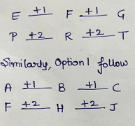 E +1 F +1 G
P +2 R +2 T
Similarly, Option 1 follow
A +1 B +1 C
F +2 H +2 J